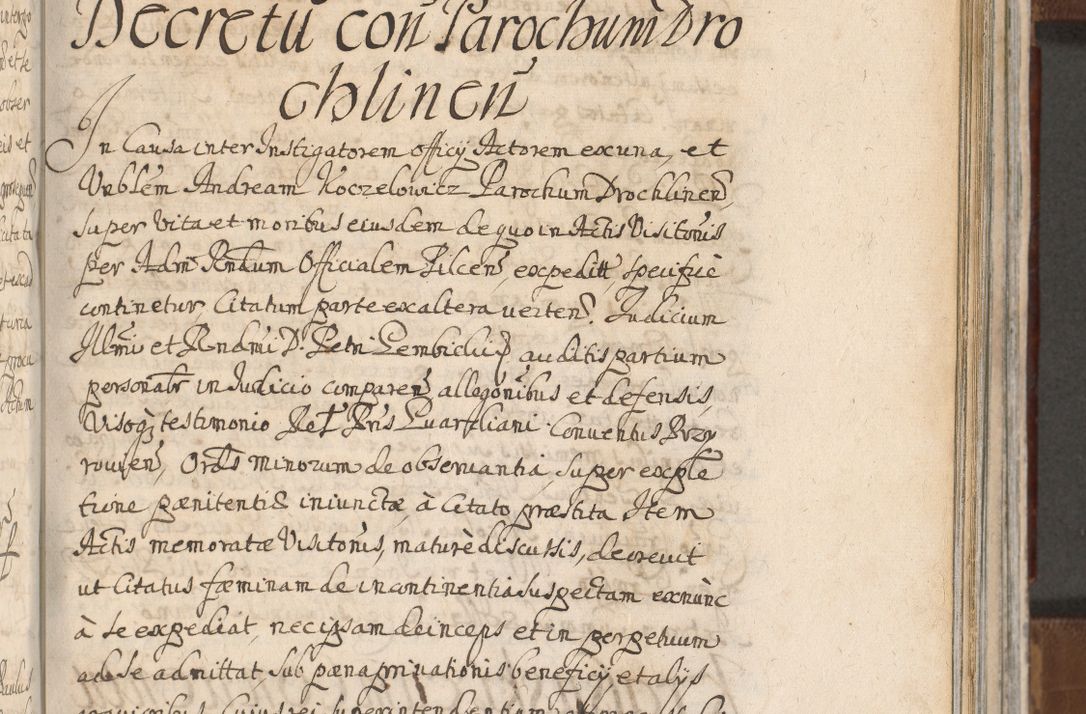 Decretū con̄ Parochum Dro
chlinen̄
In Causa inter Instigatorem officij Actorem ex una, et
Vnblem Andream Koczelowicz Parochum Drochlinen̄,
super vita et moribus eiusdem de quo in Actis Visitōnis
per Adm̄ Rndum Officialem Pilcen̄, expeditt, specificè
continetur, Citatum parte ex altera verten̄. Iudicium
Illmi et Rndmi D. Petri Gembickij auditis partium
personabr in Iudicio comparen̄ allegōnibus et defensis,
Visoq; testimonio Rel Pris Guardiani Conuentus Przy
rouien̄, Ords minorum de obseruantia, super exple
tione pænitentiæ iniunctæ, à Citato præstita Item
Actis memoratæ Visitōnis, maturè discussis, decreuit
ut Citatus fæminam de incontinentia suspectam exnunc
à se expediat, nec ipsam deinceps et in perpetuum
ad se admittat, sub pæna priuationis beneficij, et alijs